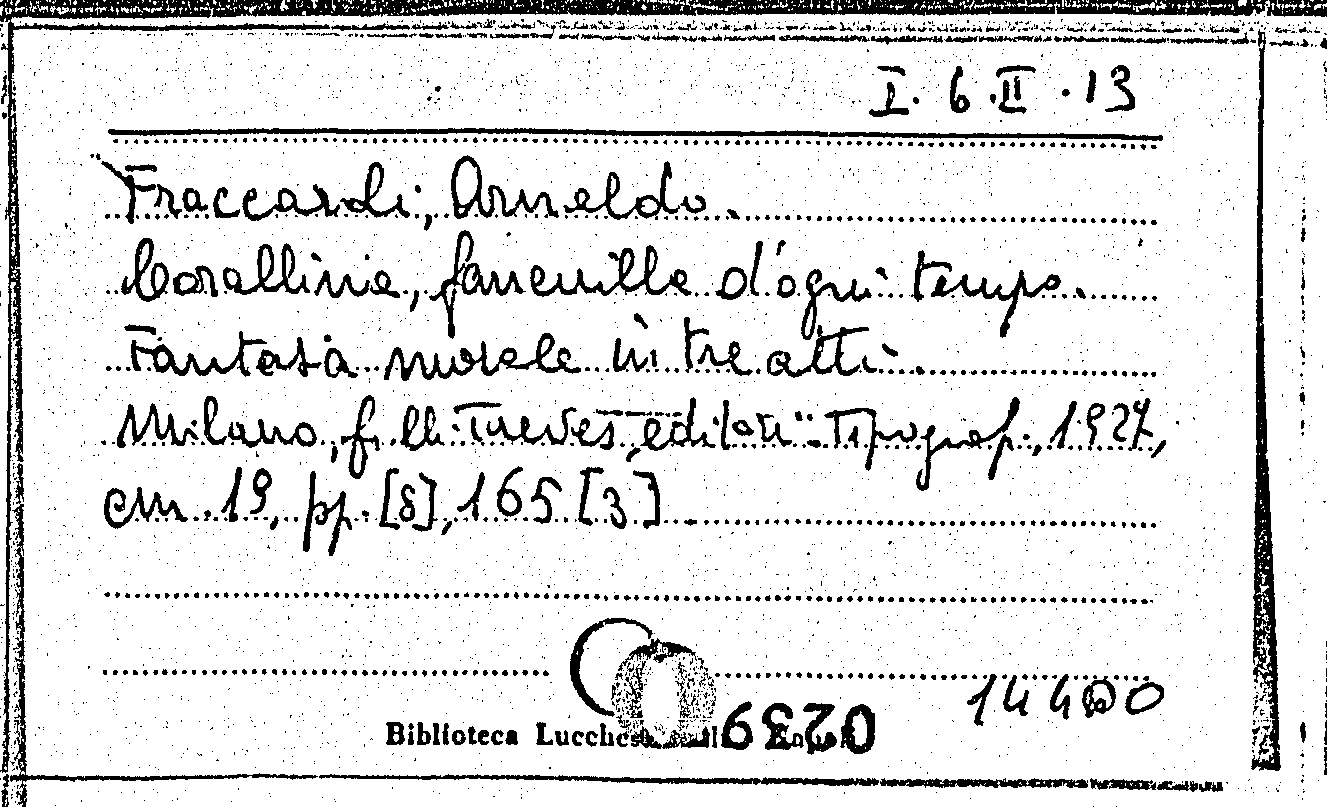 I. 6.II.13
Fraccaroli, Arnaldo.
Corallina, fanciulla d'ogni tempo.
Fantasia morale in tre atti.
Milano, f.lli Treves, editori-Tipograf., 1927,
cm. 19, pp. [8], 165 [3]
Biblioteca
0239